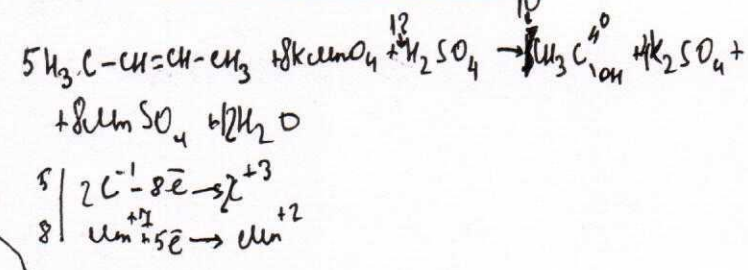 5H₃C–CH=CH–CH₃ + 8KMnO₄ + 12H₂SO₄ → 10CH₃C(=O)–OH + 4K₂SO₄ +
+ 8MnSO₄ + 12H₂O
5 | 2C⁻¹ – 8ē → 2C⁺³
8 | Mn⁺⁷ + 5ē → Mn⁺²